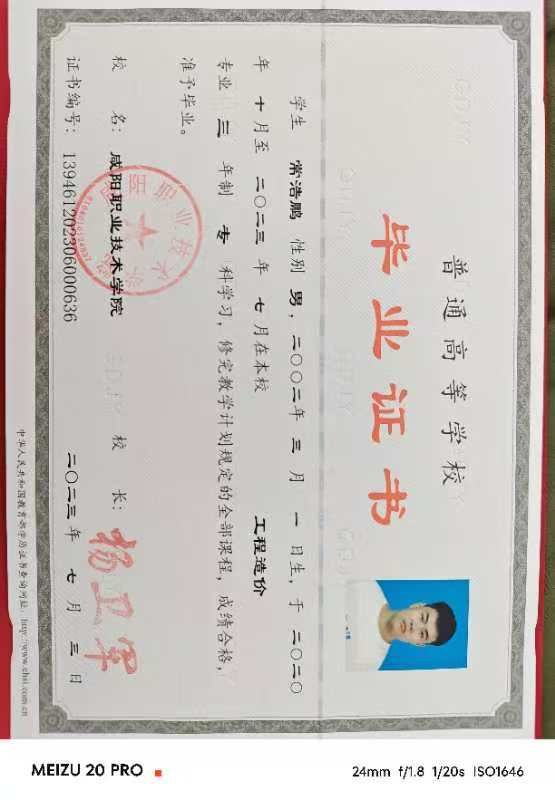 普通高等学校
毕业证书
学生 常浩鹏 性别 男，二〇〇二年 三 月 一 日生，于 二〇二〇
年 十 月至 二〇二三 年 七 月在本校 工程造价
专业 三 年制 专 科学习，修完教学计划规定的全部课程，成绩合格，
准予毕业。
校 名：咸阳职业技术学院 校 长：杨卫军
证书编号：139461202306000636 二〇二三 年 七 月 三 日
中华人民共和国教育部学历证书查询网址：http://www.chsi.com.cn
MEIZU 20 PRO
24mm f/1.8 1/20s ISO1646